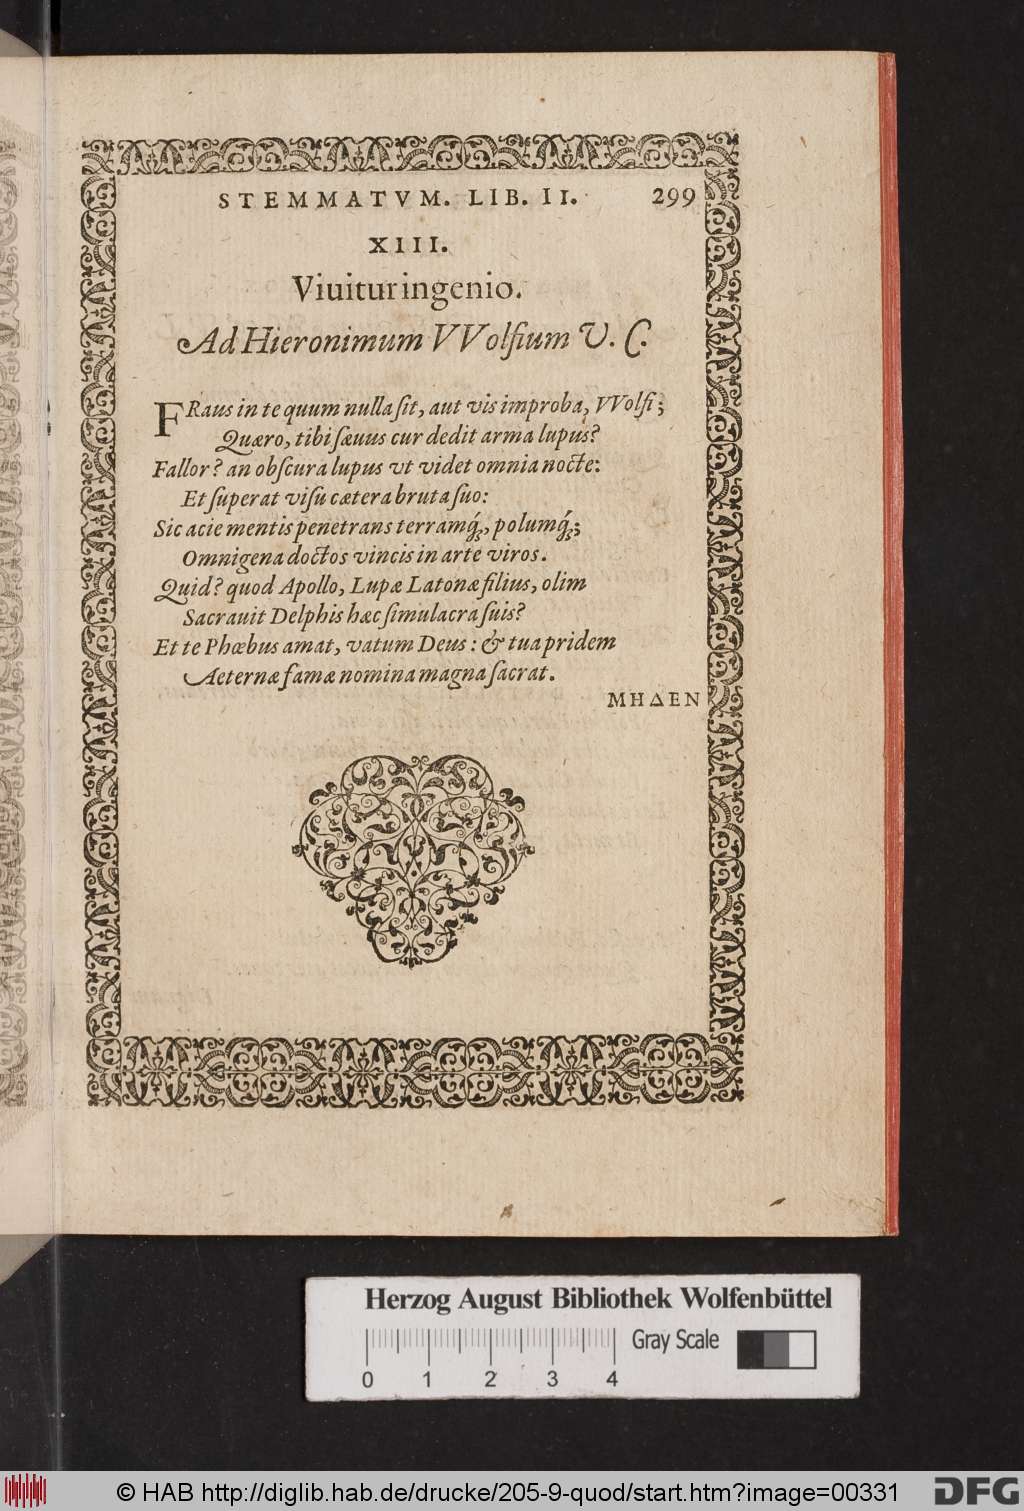 STEMMATVM. LIB. II. 299
XIII.
Viuitur ingenio.
Ad Hieronimum VVolfium V. C.
FRaus in te quum nulla ſit, aut vis improba, VVolfi;
Quæro, tibi ſæuus cur dedit arma lupus?
Fallor? an obſcura lupus vt videt omnia nocte:
Et ſuperat viſu cætera bruta ſuo:
Sic acie mentis penetrans terramq́;, polumq́;;
Omnigena doctos vincis in arte viros.
Quid? quod Apollo, Lupæ Latonæ filius, olim
Sacrauit Delphis hæc ſimulacra ſuis?
Et te Phœbus amat, vatum Deus: & tua pridem
Aeternæ famæ nomina magna ſacrat.
ΜΗΔΕΝ
Herzog August Bibliothek Wolfenbüttel
Gray Scale
0 1 2 3 4
© HAB http://diglib.hab.de/drucke/205-9-quod/start.htm?image=00331
DFG